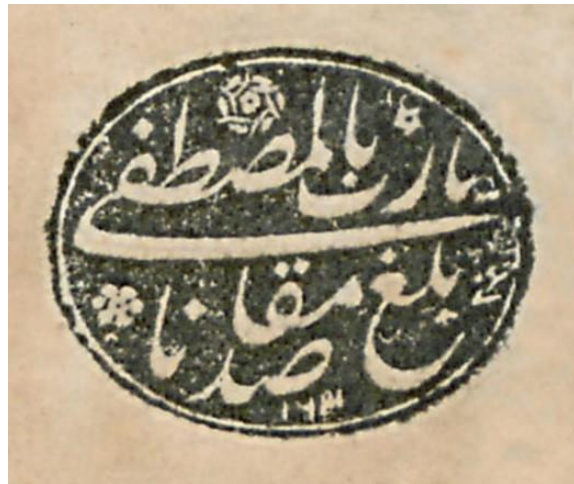 يا رب بالمصطفى
بلغ مقاصدنا